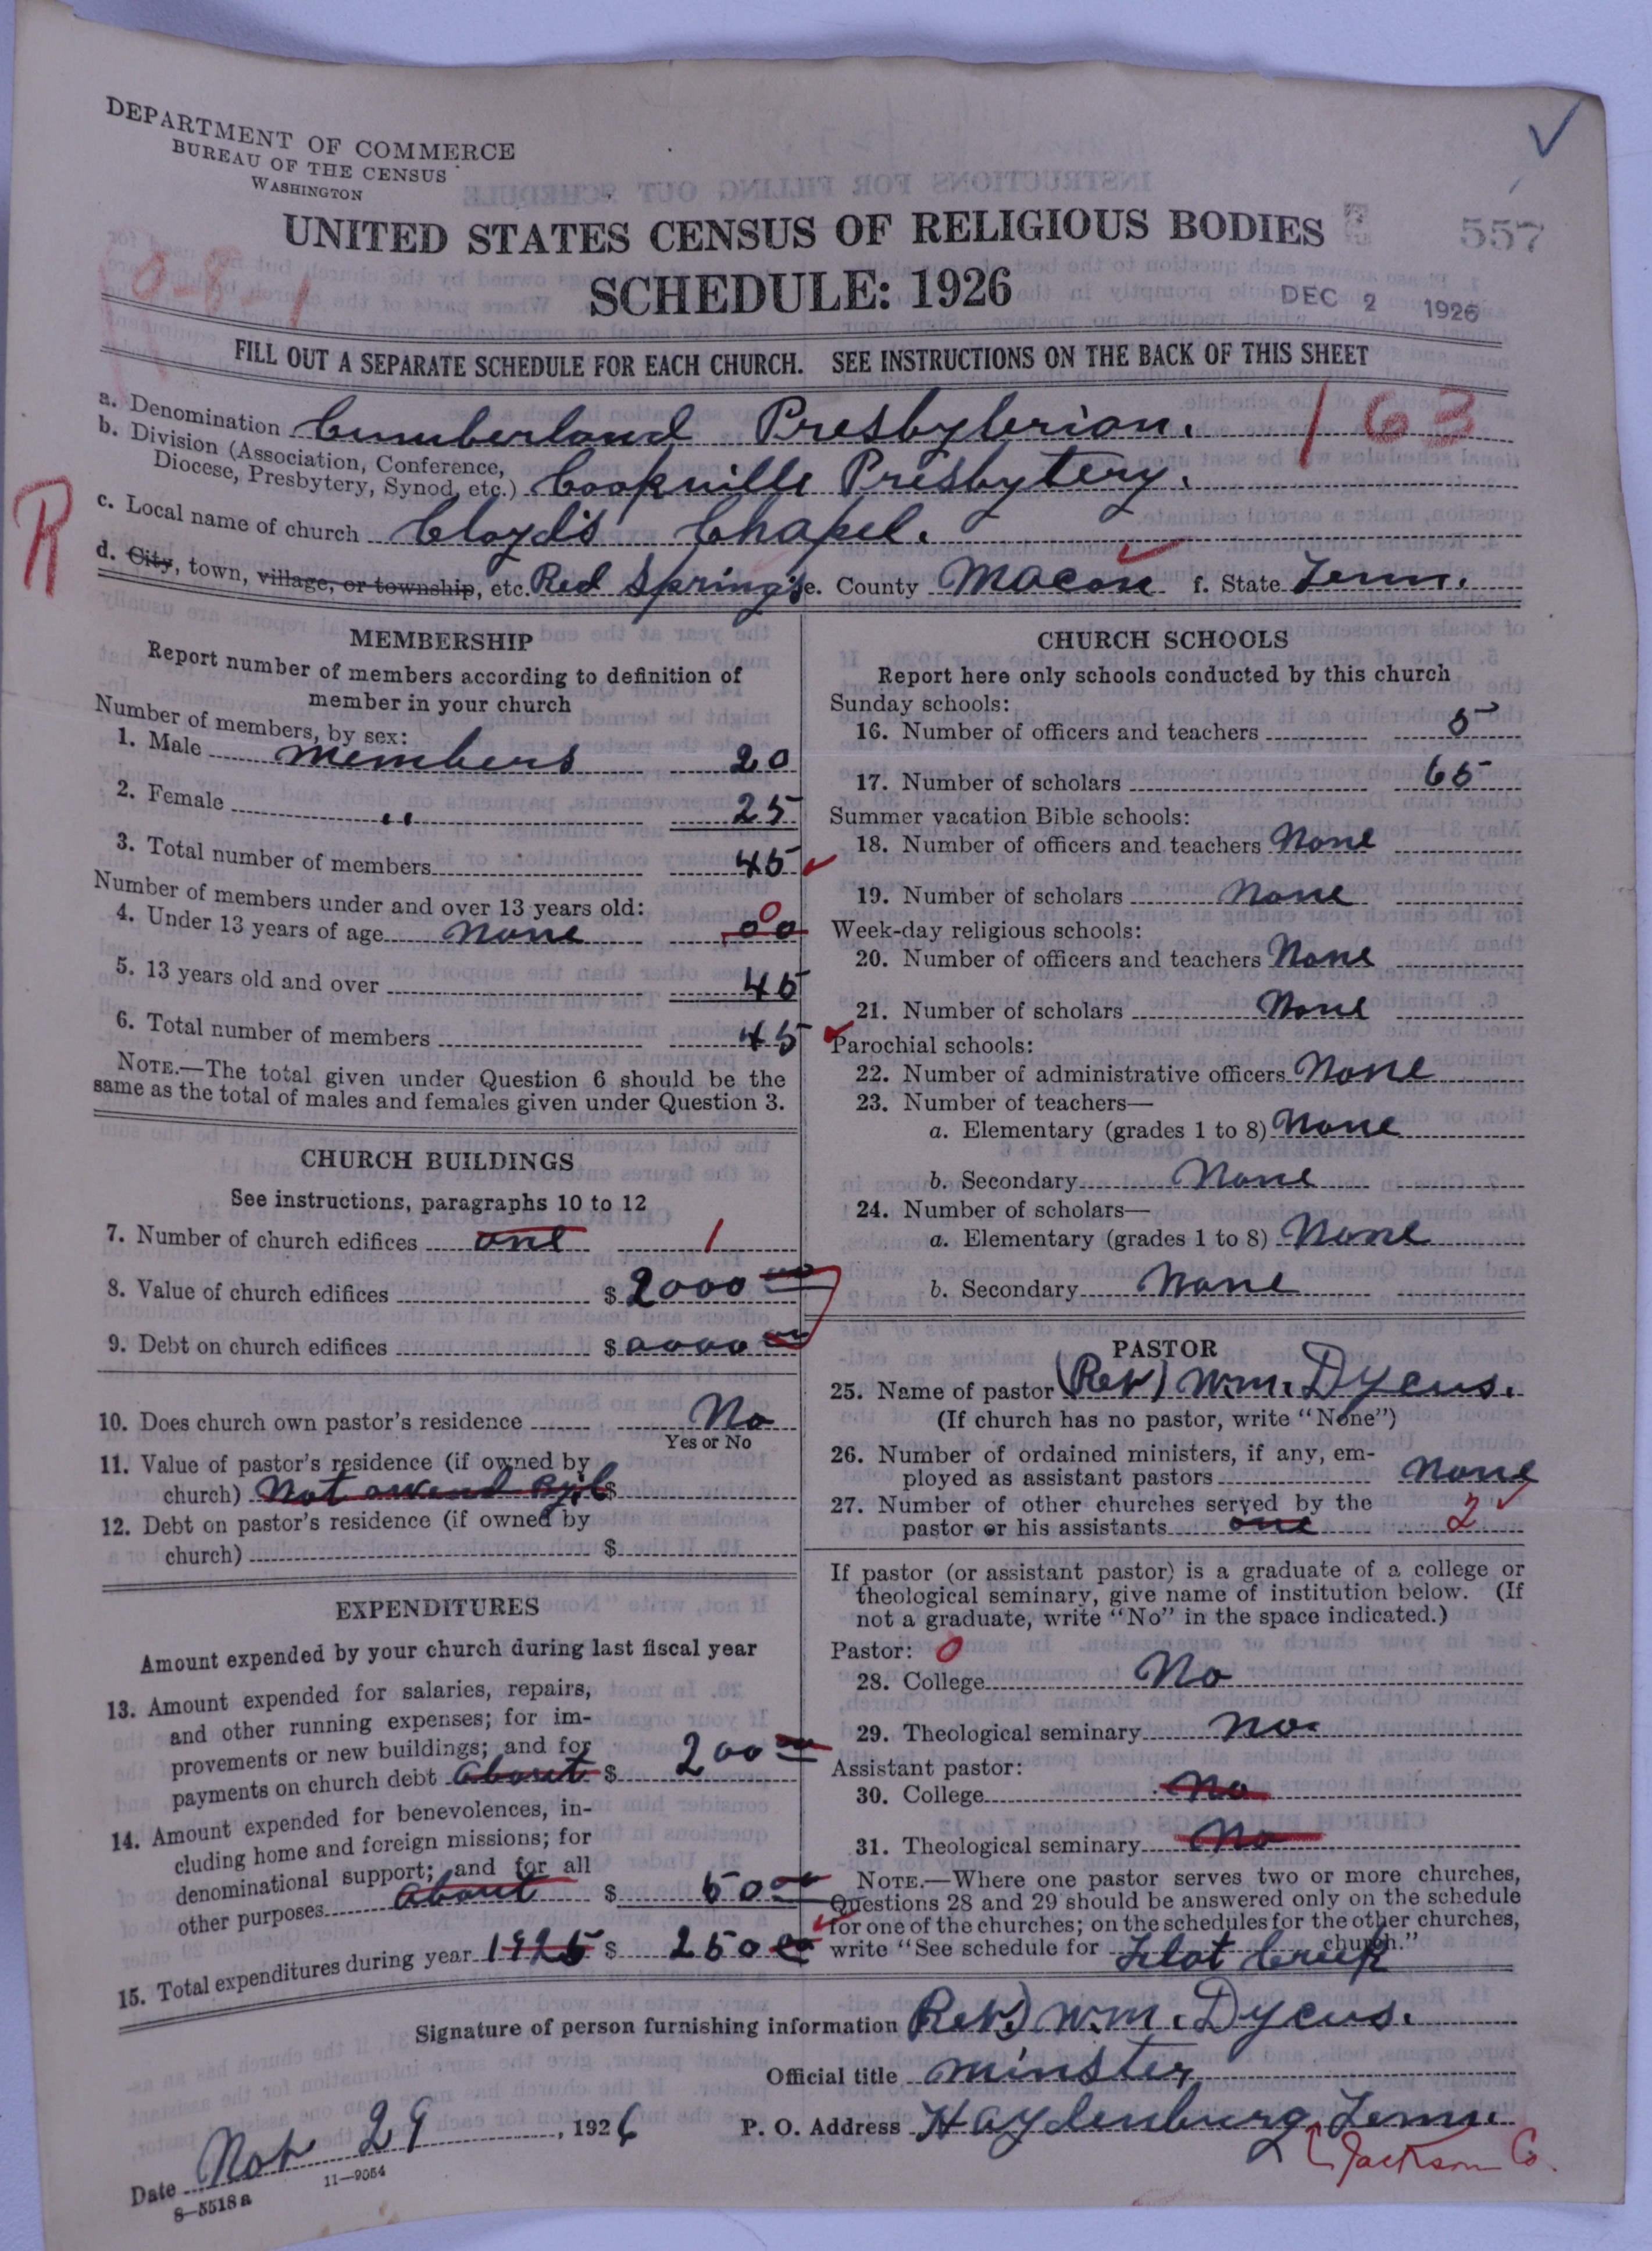 DEPARTMENT OF COMMERCE
BUREAU OF THE CENSUS
WASHINGTON
UNITED STATES CENSUS OF RELIGIOUS BODIES
557
SCHEDULE: 1926
DEC 2 1926
FILL OUT A SEPARATE SCHEDULE FOR EACH CHURCH. SEE INSTRUCTIONS ON THE BACK OF THIS SHEET
a. Denomination Cumberland Presbyterian. 163
b. Division (Association, Conference,
Diocese, Presbytery, Synod, etc.) Cookville Presbytery.
R
c. Local name of church Cloyd's Chapel.
d. City, town, village, or township, etc. Red Springs e. County Macon f. State Tenn.
MEMBERSHIP
Report number of members according to definition of
member in your church
Number of members, by sex:
1. Male members 20
2. Female " 25
3. Total number of members 45
Number of members under and over 13 years old:
4. Under 13 years of age none 00 0
5. 13 years old and over 45
6. Total number of members 45
NOTE.—The total given under Question 6 should be the
same as the total of males and females given under Question 3.
CHURCH BUILDINGS
See instructions, paragraphs 10 to 12
7. Number of church edifices one 1
8. Value of church edifices $ 2000 00
9. Debt on church edifices $ 0000 00
10. Does church own pastor's residence No
Yes or No
11. Value of pastor's residence (if owned by
church) Not owend $
12. Debt on pastor's residence (if owned by
church) $
EXPENDITURES
Amount expended by your church during last fiscal year
13. Amount expended for salaries, repairs,
and other running expenses; for im-
provements or new buildings; and for
payments on church debt about $ 200 00
14. Amount expended for benevolences, in-
cluding home and foreign missions; for
denominational support; and for all
other purposes about $ 50 00
15. Total expenditures during year 1925 $ 250 00
CHURCH SCHOOLS
Report here only schools conducted by this church
Sunday schools:
16. Number of officers and teachers 5
17. Number of scholars 65
Summer vacation Bible schools:
18. Number of officers and teachers None
19. Number of scholars None
Week-day religious schools:
20. Number of officers and teachers None
21. Number of scholars None
Parochial schools:
22. Number of administrative officers None
23. Number of teachers—
a. Elementary (grades 1 to 8) None
b. Secondary None
24. Number of scholars—
a. Elementary (grades 1 to 8) None
b. Secondary None
PASTOR
25. Name of pastor (Rev) Wm. Dycus.
(If church has no pastor, write "None")
26. Number of ordained ministers, if any, em-
ployed as assistant pastors None
27. Number of other churches served by the
pastor or his assistants one 2
If pastor (or assistant pastor) is a graduate of a college or
theological seminary, give name of institution below. (If
not a graduate, write "No" in the space indicated.)
Pastor: 0
28. College No
29. Theological seminary No.
Assistant pastor:
30. College No
31. Theological seminary No
NOTE.—Where one pastor serves two or more churches,
Questions 28 and 29 should be answered only on the schedule
for one of the churches; on the schedules for the other churches,
write "See schedule for Flat Creek church."
Signature of person furnishing information Rev.) Wm. Dycus.
Official title minster
Date Nov 29, 1926 P. O. Address Haydenburg Tenn.
Jackson Co.
8—5518 a 11—9054